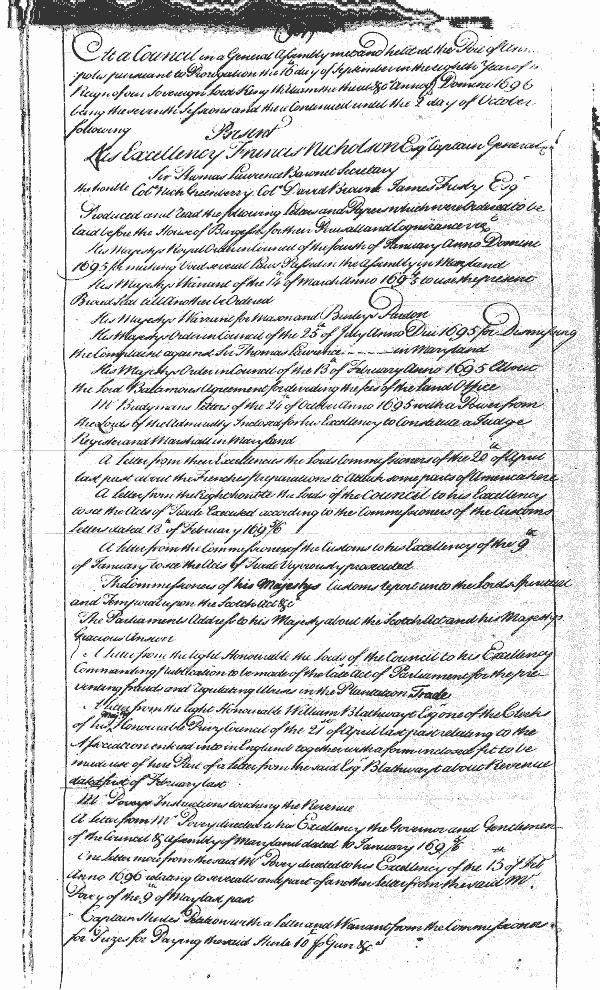 Att a Council in a General Assembly mett and held att the Port of Ann
polis pursuant to Prorogation the 16th day of September in the eighth Year of
Reign of our Sovereign Lord King William the third &c Annoq Domini 1696
being the seventh Sessions and there Continued until the 2d day of October
following
Present
His Excellency Francis Nicholson Esqr Captain General &c
Sir Thomas Lawrence Baronet Secretary
the honble Colo Nich Greenberry Colo David Browne James Frisby Esqr
Produced and read the following Letters and Papers which were Ordered to be
laid before the House of Burgesses for their Perusall and Cognizance vizt
His Majestys Royal Order in Council of the fourth of January Anno Domini
1695 for making Void severall Laws Passed in the Assembly in Maryland
His Majestys Warrant of the 14th of March Anno 1695/6 to use the present
Broad Seal till Another be Ordered
His Majestys Warrant for Mason and Burleys Pardon
His Majestys Order in Council of the 25th of July Anno Dni 1695 for Dismissing
the Complaint against Sir Thomas Lawrence in Maryland
His Majestys Order in Council of the 13th of February Anno 1695 About
the Lord Baltamores Agreement for dividing the fees of the Land Office
Mr Bridgmans Letters of the 24th of October Anno 1695 with a Power from
the Lords of the Admiralty Inclosed for his Excellency to Constitute a Judge
Register and Marshall in Maryland
A Letter from their Excellencies the Lords Commissioners of the 20th of April
last past about the Frenches Preparations to Attack some parts of America here
A Letter from the Right honoble the Lords of the Council to his Excellency
to see the Acts of Trade Executed according to the Commissioners of the Customs
Letters dated 13th of February 1695/6
A Letter from the Commissioners of the Customs to his Excellency of the 9th
of January to see the Acts of Trade Vigorously prosecuted
The Commissioners of his Majestys Customs report unto the Lords Spiritual
and Temporal upon the Scotch Act &c
The Parliaments Address to his Majesty about the Scotch Act and his Majestys
Gracious Answer
A Letter from the Right Honourable the Lords of the Council to his Excellency
Commanding Publication to be made of the late Act of Parliament for the pre
venting frauds and regulating Abuses in the Plantation Trade
A Letter from the Right Honourable William Blathwayt Esqr one of the Clerks
of his Honourable Privy Council of the 21st of April last past relating to the
Association entred into in England together with a form inclosed fit to be
made use of here Part of a Letter from the said Esqr Blathwayt about Revenue
dated first of February last
Mr Poveys Instructions touching the Revenue
A Letter from Mr Povey directed to his Excellency the Governor and Gentlemen
of the Council & Assembly of Maryland dated 10 January 1695/6
One letter more from the said Mr Povey directed to his Excellency of the 15th of Feb
Anno 1696 relating to severalls and part of another Letter from the said Mr
Povey of the 9th of May last past
Captain Petition with a Letter and Warrant from the Commissioners
for Prizes for Paying the said 10 & Gun &c